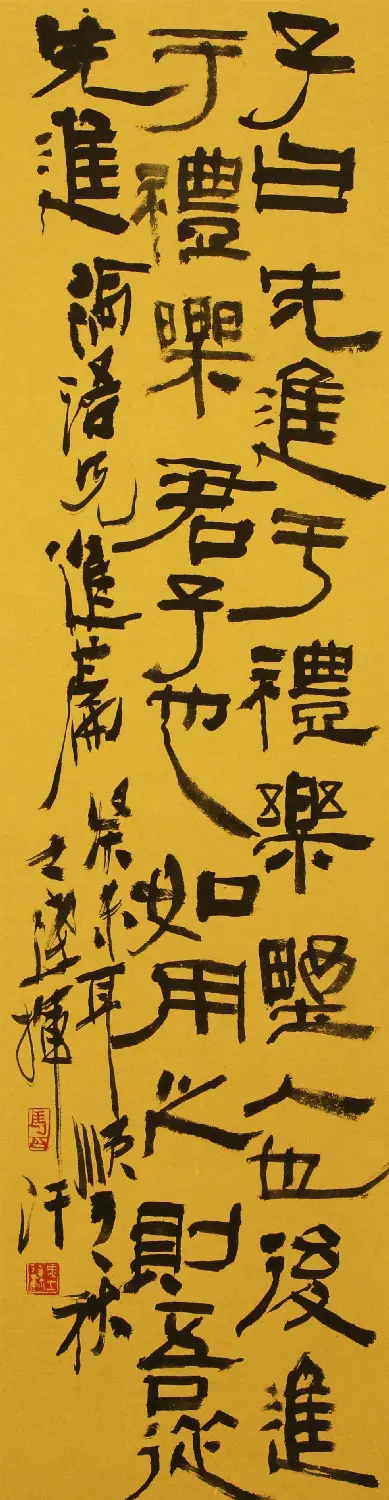 子曰先進于禮樂野人也後進
于禮樂君子也如用之則吾從
先進 論語先進篇
癸未耳順之秋
士達揮汗